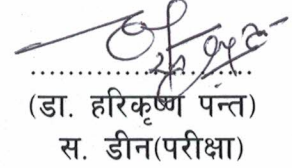 (डा. हरिकृष्ण पन्त)
स. डीन(परीक्षा)